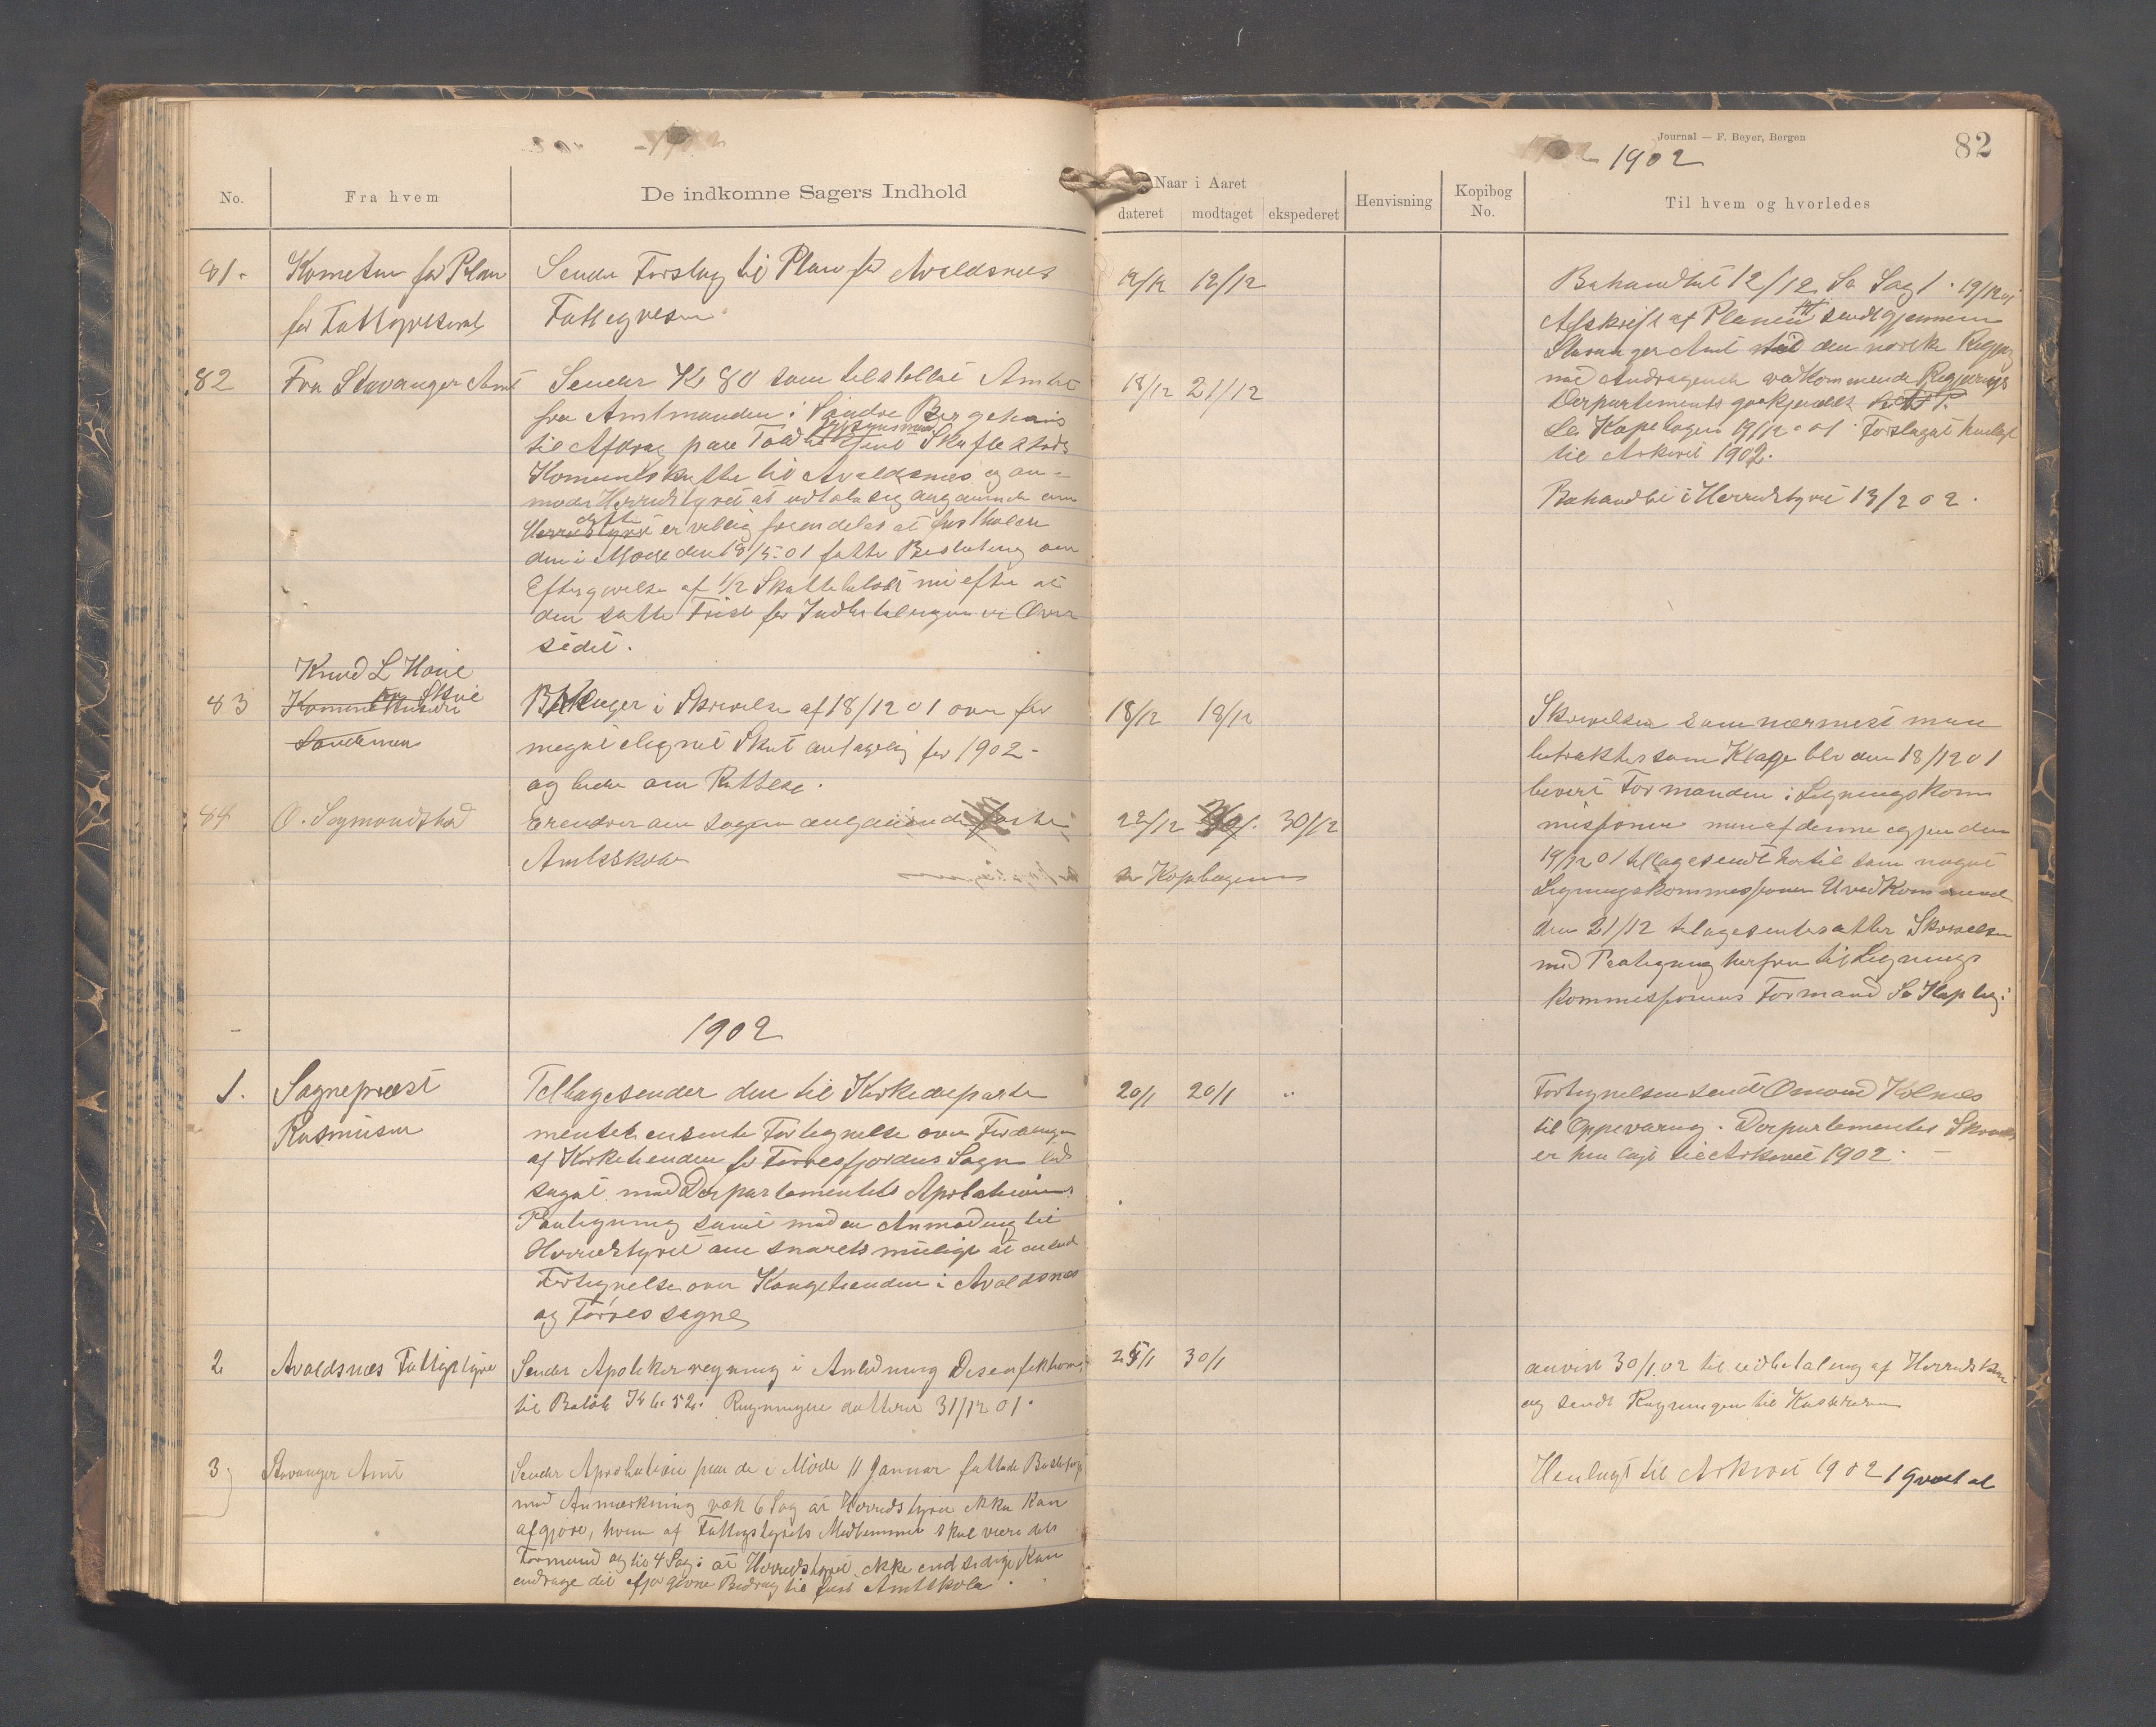 Journal — F. Beyer, Bergen
82
1902
No.
Fra hvem
De indkomne Sagers Indhold
Naar i Aaret
dateret
modtaget
ekspederet
Henvisning
Kopibog No.
Til hvem og hvorledes
81.
Kometen for Plan
for Fattigvesenet
Sender Forslag til Plan for Avaldsnes
Fattigvesen
12/12
Behandlet 12/12 Se Sag 1. 19/12 01
Afskrift af Planen sendt gjennem
Stavanger Amt til den norske Regjer
med Andragende vedkommende Regjerings
Departements godkjendelse
Se Kopebogen 19/12-01. Forslaget henlagt
til Arkivet 1902.
82
Fra Stavanger Amt
Sender Kr 80 som tilstillet Amtet
fra Amtmanden i Søndre Bergehus
til Afdrag paa Skuflestads
Komuneskatte til Avaldsnes og an-
moder Herredstyret at udtale sig angaaende om
Herredstyret er villig fremdeles at fastholde
den i Møde den 18/5.01 fatte Beslutning om
Eftergivelse af 1/2 Skattebeløbet nu efter at
den satte Frist for Indbetalingen er Over
sedet.
18/12 21/12
Behandlet i Herredstyret 13/2 02.
83
Knud L Hoie
Klager i Skrivelse af 18/12 01 over for
meget lignet Skat antagelig for 1902-
og beder om Rettelse.
18/12 18/12
Skrivelsen som nærmest man
betrakter som Klage blev den 18/12 01
levert Formanden i Ligningskom
missjonen men af denne igjen den
19/12 01 tilbagesendt hertil som noget
Ligningskommissjonen Uvedkommende
den 21/12 tilbagesendtes atter Skrivelsen
med Paategning herfra til Lignings
kommissjonens Formand Se Kopbog.
84
O. Sagmondstad
Erendrer om sagen angaaende
Amtsskole
22/12 30/12
se Kopebogen
1902
1.
Sogneprest
Rasmussen
Tilbagesender den til Kirkedeparte
mentet ensente Fortegnelse over Fordelingen
af Kirketienden for Førresfjordens Sogn led
saget med Departementets Aprobations
Paategning samt med en Anmodning til
Herredstyret om snarets mulige at ensende
Fortegnelse over Kongetienden i Avaldsnes
og Førres sogne
20/1 20/1 "
Fortegnelsen sendt Omund Kolnes
til Oppevaring. Departementets Skrivelse
er henlagt til Arkivet 1902.
2
Avaldsnes Fattigstyre
Sender Apotekerregning i Anledning Desenfektions
til Beløb Kr 6.52. Regningen datteret 31/12 01.
25/1 30/1
anvist 30/1.02 til udbetaling af Herredskas
og sendt Regningen til Kassereren
3
Stavanger Amt
Sender Aprobation paa de i Møde 11 Januar fattede Beslutninger
med Anmerkning ved 6 Sag at Herredstyret ikke kan
afgjøre, hvem af Fattigstyrets Medlemmer skal være dets
Formand og til 4 Sag: at Herredstyret ikke endsedige kan
endrage det afgivne Bedrag til fast Amtskole.
Henlagt til Arkivet 1902 1 Qvartal